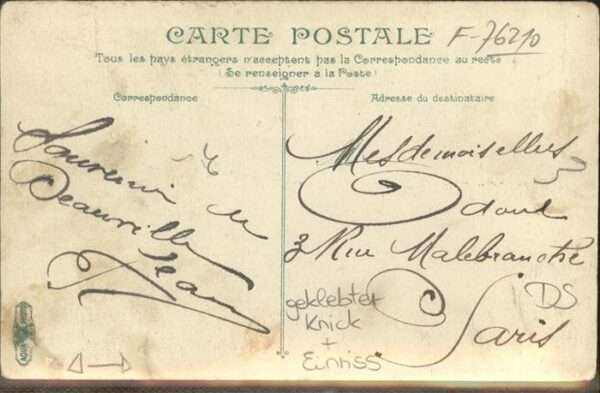 CARTE POSTALE
F-76210
Tous les pays étrangers n'acceptent pas la Correspondance au recto
(Se renseigner à la Poste)
Correspondance
Adresse du destinataire
Souvenir de
Deauville
Jean
Mesdemoiselles
3 Rue Malebranche
Paris
geklebter
Knick
+
Einriss
DS